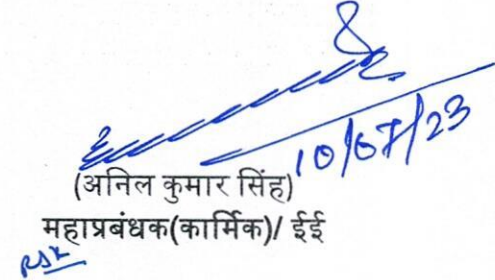 10/07/23
(अनिल कुमार सिंह)
महाप्रबंधक(कार्मिक)/ ईई